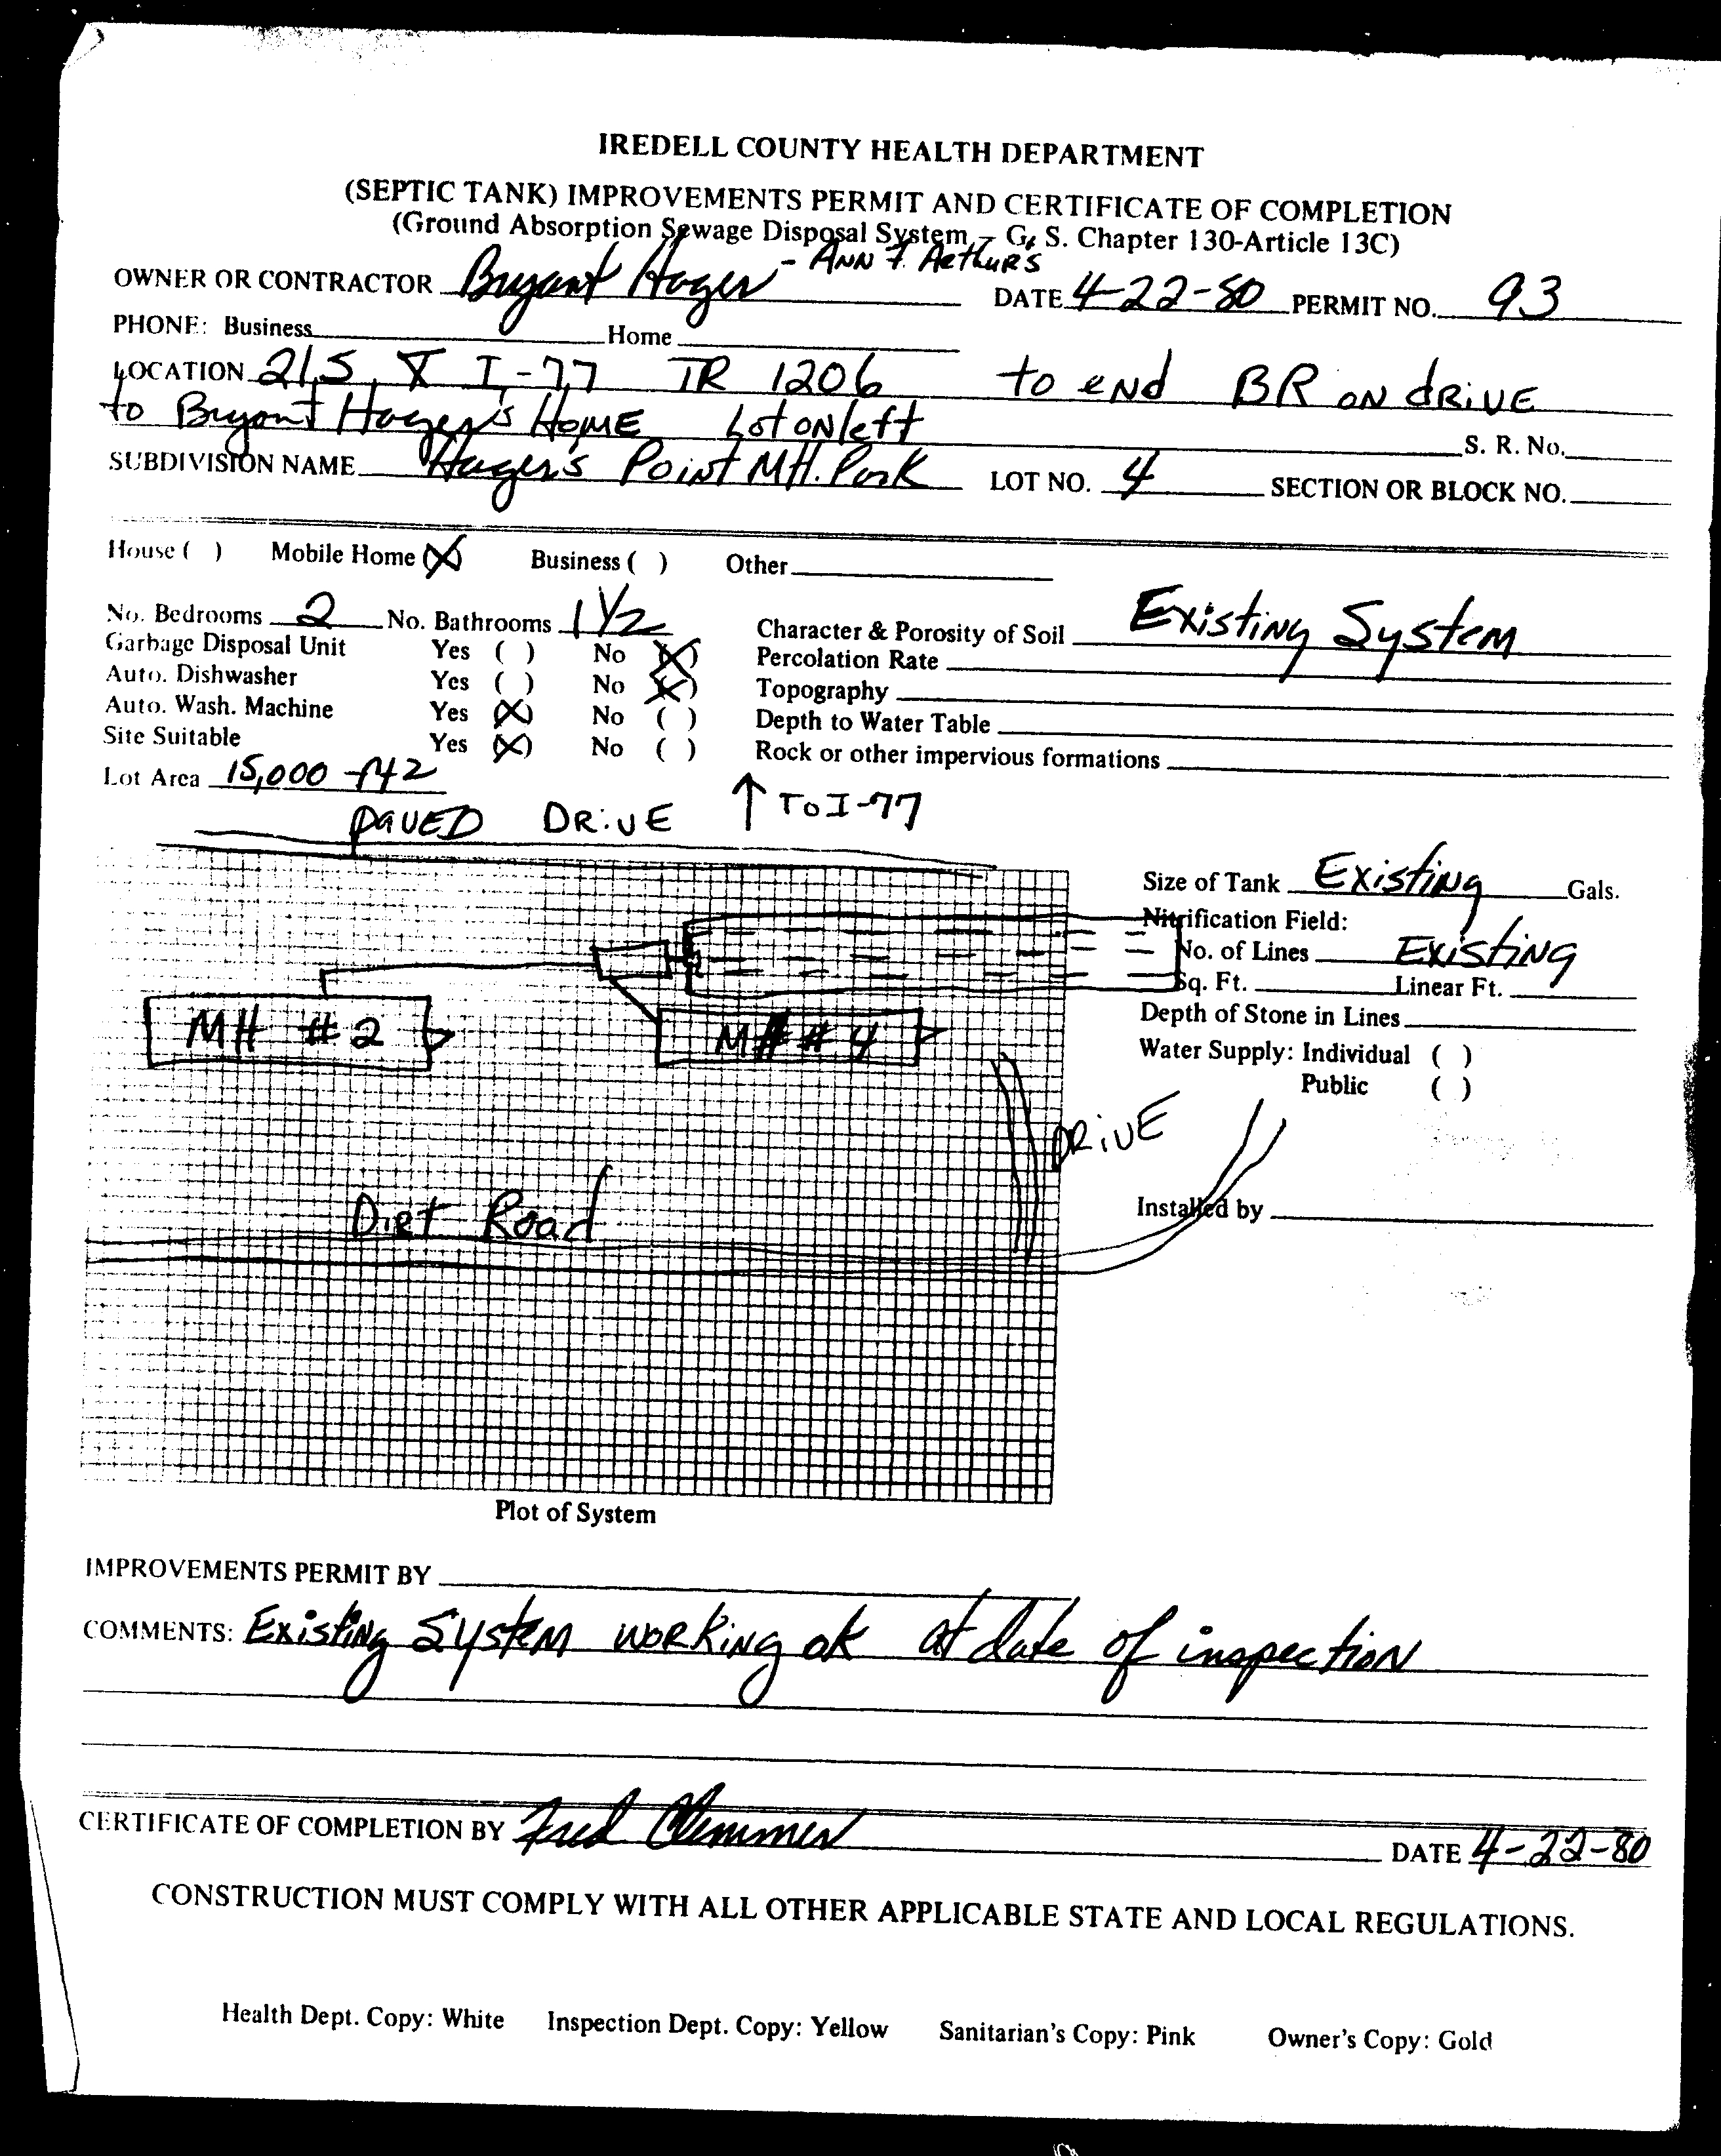 IREDELL COUNTY HEALTH DEPARTMENT
(SEPTIC TANK) IMPROVEMENTS PERMIT AND CERTIFICATE OF COMPLETION
(Ground Absorption Sewage Disposal System - G. S. Chapter 130-Article 13C)
OWNER OR CONTRACTOR Bryant Hager - ANN F. ARthuRS DATE 4-22-80 PERMIT NO. 93
PHONE: Business Home
LOCATION 21S, X I-77 TR 1206 to END BR ON dRiVE
to Bryant Hager's HOME Lot ON left S. R. No.
SUBDIVISION NAME Hager's Point MH. Park LOT NO. 4 SECTION OR BLOCK NO.
House ( ) Mobile Home (X) Business ( ) Other
No. Bedrooms 2 No. Bathrooms 1 1/2 Character & Porosity of Soil Existing System
Garbage Disposal Unit Yes ( ) No (X) Percolation Rate
Auto. Dishwasher Yes ( ) No (X) Topography
Auto. Wash. Machine Yes (X) No ( ) Depth to Water Table
Site Suitable Yes (X) No ( ) Rock or other impervious formations
Lot Area 15,000 ft2
PAVED DRiVE ↑ To I-77
Size of Tank Existing Gals.
Nitrification Field:
No. of Lines Existing
Sq. Ft. Linear Ft.
MH #2 MH #4
Depth of Stone in Lines
Water Supply: Individual ( )
Public ( )
DRiVE
Dirt Road
Installed by
Plot of System
IMPROVEMENTS PERMIT BY
COMMENTS: Existing System WORKING ok at date of inspection
CERTIFICATE OF COMPLETION BY Fred Clemmer DATE 4-22-80
CONSTRUCTION MUST COMPLY WITH ALL OTHER APPLICABLE STATE AND LOCAL REGULATIONS.
Health Dept. Copy: White Inspection Dept. Copy: Yellow Sanitarian's Copy: Pink Owner's Copy: Gold